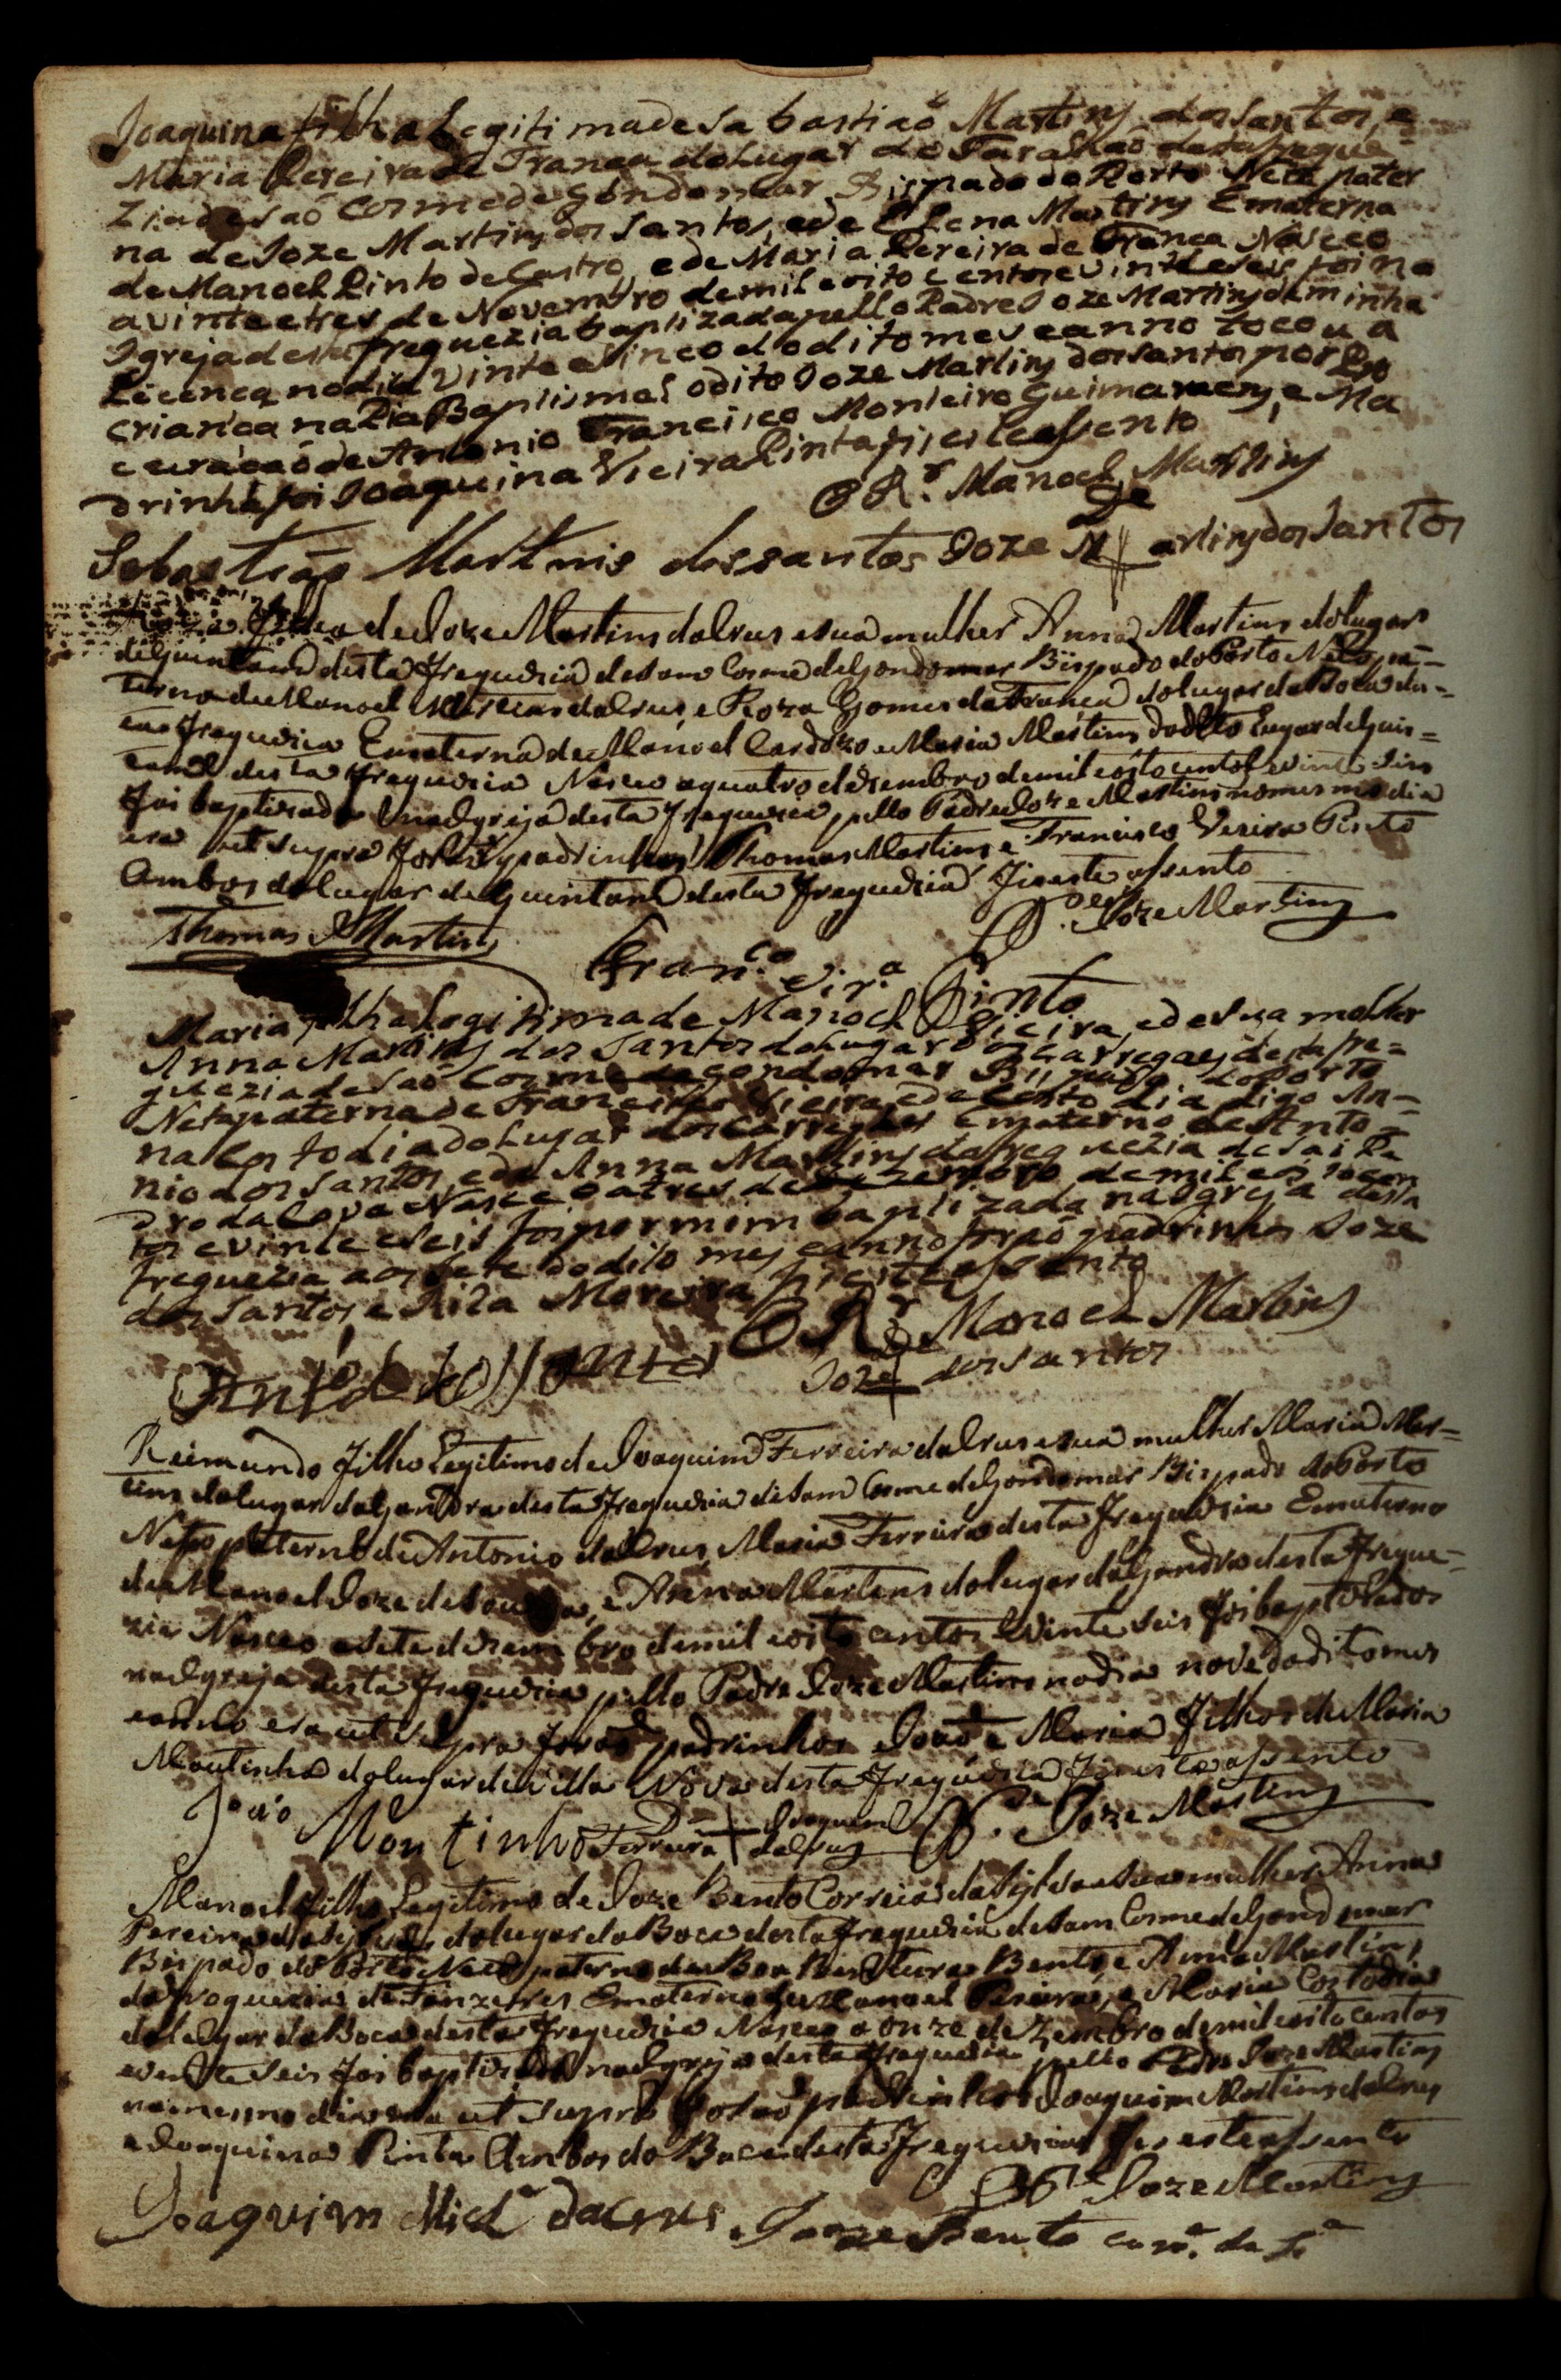 Joaquina filha Legitima de Sabastiaõ Martins dos Santos, e
Maria Pereira de Franca do Lugar do Taralhaõ desta fregue=
zia de saõ Cosme de Gondomar Bispado do Porto Neta pater
na de Joze Martins dos Santos, e de Elena Martins E materna
de Manoel Pinto de Castro, e de Maria Pereira de Franca Nasceo
a vinte e tres de Novembro de mil e oito centos e vinte e seis foi na
Igreja desta freguezia baptizada pello Padre Joze Martins de minha
Licenca no dia vinte e sinco do dito mes e anno tocou a
crianca na Pia Baptismal o dito Joze Martins dos santos por Pro
curacaõ de Antonio Francisco Monteiro Guimaraens, e Ma
drinha foi Joaquina Vieira Pinta fis este assento
O R.r Manoel Martins
Sebastião Martins dos santos Joze M De artins dos Santos
filha de Joze Martins da Crus e sua mulher Anna Martins do lugar
de Quintana desta Freguezia de Sam Cosme de Gondomar Bispado do Porto Neta pa=
terna de Manoel Martins da Crus, e Roza Gomes da França do lugar da Boca des=
ta Freguezia E materna de Manoel Cardozo e Maria Martins do dito Lugar de Quin=
tana desta Freguezia Nasceo a quatro de Dezembro de mil e oito centos e vinte e seis
Foi baptizada na Igreja desta Freguezia pello Padre Joze Martins no mesmo dia
era ut supra Foraõ padrinhos Thomas Martins e Francisco Vieira Pinto
Ambos do lugar de Quintana desta Freguezia Fis este assento
O P.e Joze Martins
Thomas Martins
Fran.co Vir.a Pinto
Maria filha Legitima de Manoel Vieira, e de sua molher
Anna Martins dos Santos do Lugar dos Carregaes desta fre=
guezia de saõ Cosme de Gondomar Bispado do Porto
Neta paterna de Francisco Vieira e de Custo dia digo An=
na Custodia do Lugar dos Carregaes E materna de Anto=
nio dos Santos, e de Anna Martins da freguezia de sai Pe
dro da Cova Nasceo a tres de Dezembro de mil e oito cen
tos e vinte e seis foi por mim baptizada na Igreja desta
freguezia aos sete do dito mes e anno foraõ padrinhos Joze
dos Santos, e Rita Moreira fis este assento
O R.r Manoel Martins
Antó dos Santos Joze De dos Santos
Reimundo Filho Legitimo de Joaquim Ferreira da Crus e sua mulher Maria Mar=
tins do lugar da Gandra desta Freguezia de Sam Cosme de Gondomar Bispado do Porto
Neto paterno de Antonio da Crus, Maria Ferreira desta Freguezia E materno
de Manoel Joze de Souza, e Anna Martins do lugar da Gandra desta Fregue=
zia Nasceo a sete de Dezembro de mil e oito centos e vinte e seis Foi baptizado
na Igreja desta Freguezia pello Padre Joze Martins no dia nove do dito mes
e anno era ut supra Foraõ padrinhos Joaõ e Maria Filhos de Maria
Moutinha do lugar de Villa Nova desta Freguezia Fis este assento
O P.e Joze Martins
João Montinho Ferreira De Joaquim da Crus
Manoel filho Legitimo de Joze Bento Correia da Sylva e sua mulher Anna
Pereira da Sylva do lugar da Boca desta Freguezia de Sam Cosme de Gondomar
Bispado do Porto Neto paterno de Boa Ventura Bento, e Anna Martins
da Freguezia de Fanzeres E materno de Manoel Pereira, e Maria Custodia
do lugar da Boca desta Freguezia Nasceo a onze de Zembro de mil e oito centos
e vinte e seis Foi baptizado na Igreja desta Freguezia pello Padre Joze Martins
no mesmo dia era ut supra Foraõ padrinhos Joaquim Martins da Crus
e Joaquina Pinta Ambos da Boca desta Freguezia Fis este assento
O P.e Joze Martins
Joaquim da Crus Joze Bento